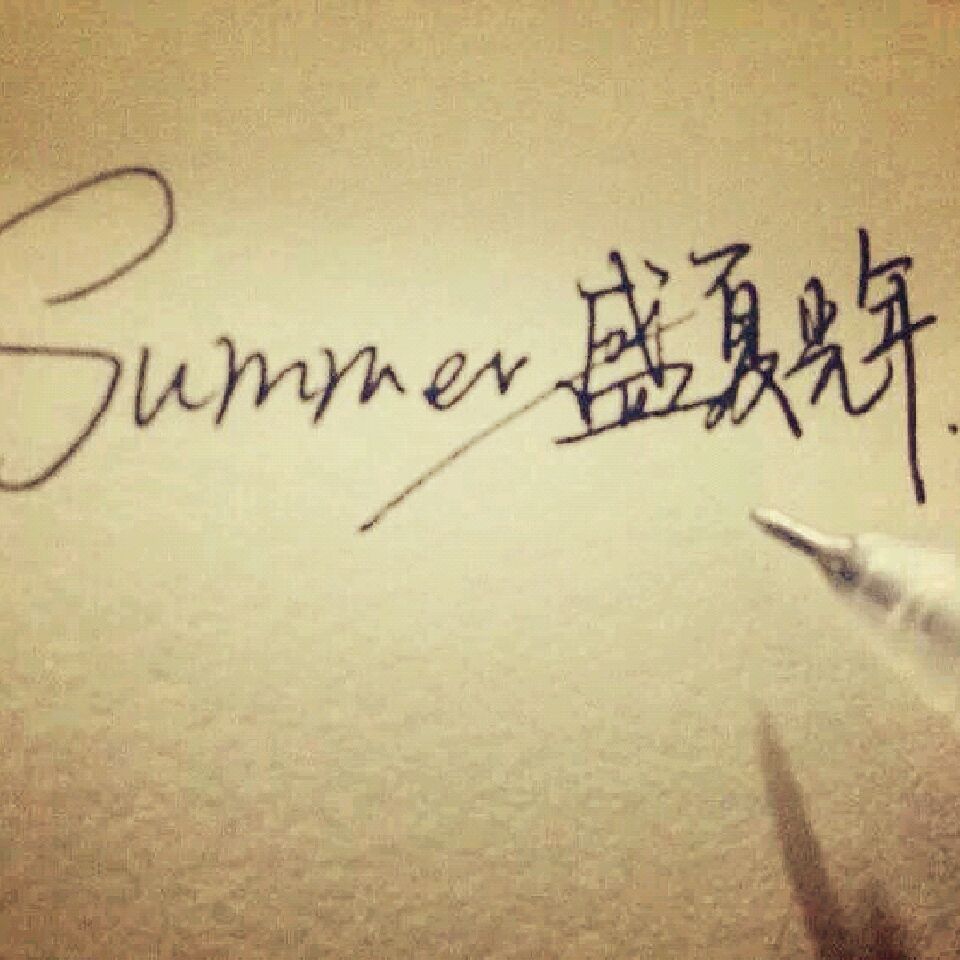 Summer 盛夏光年.